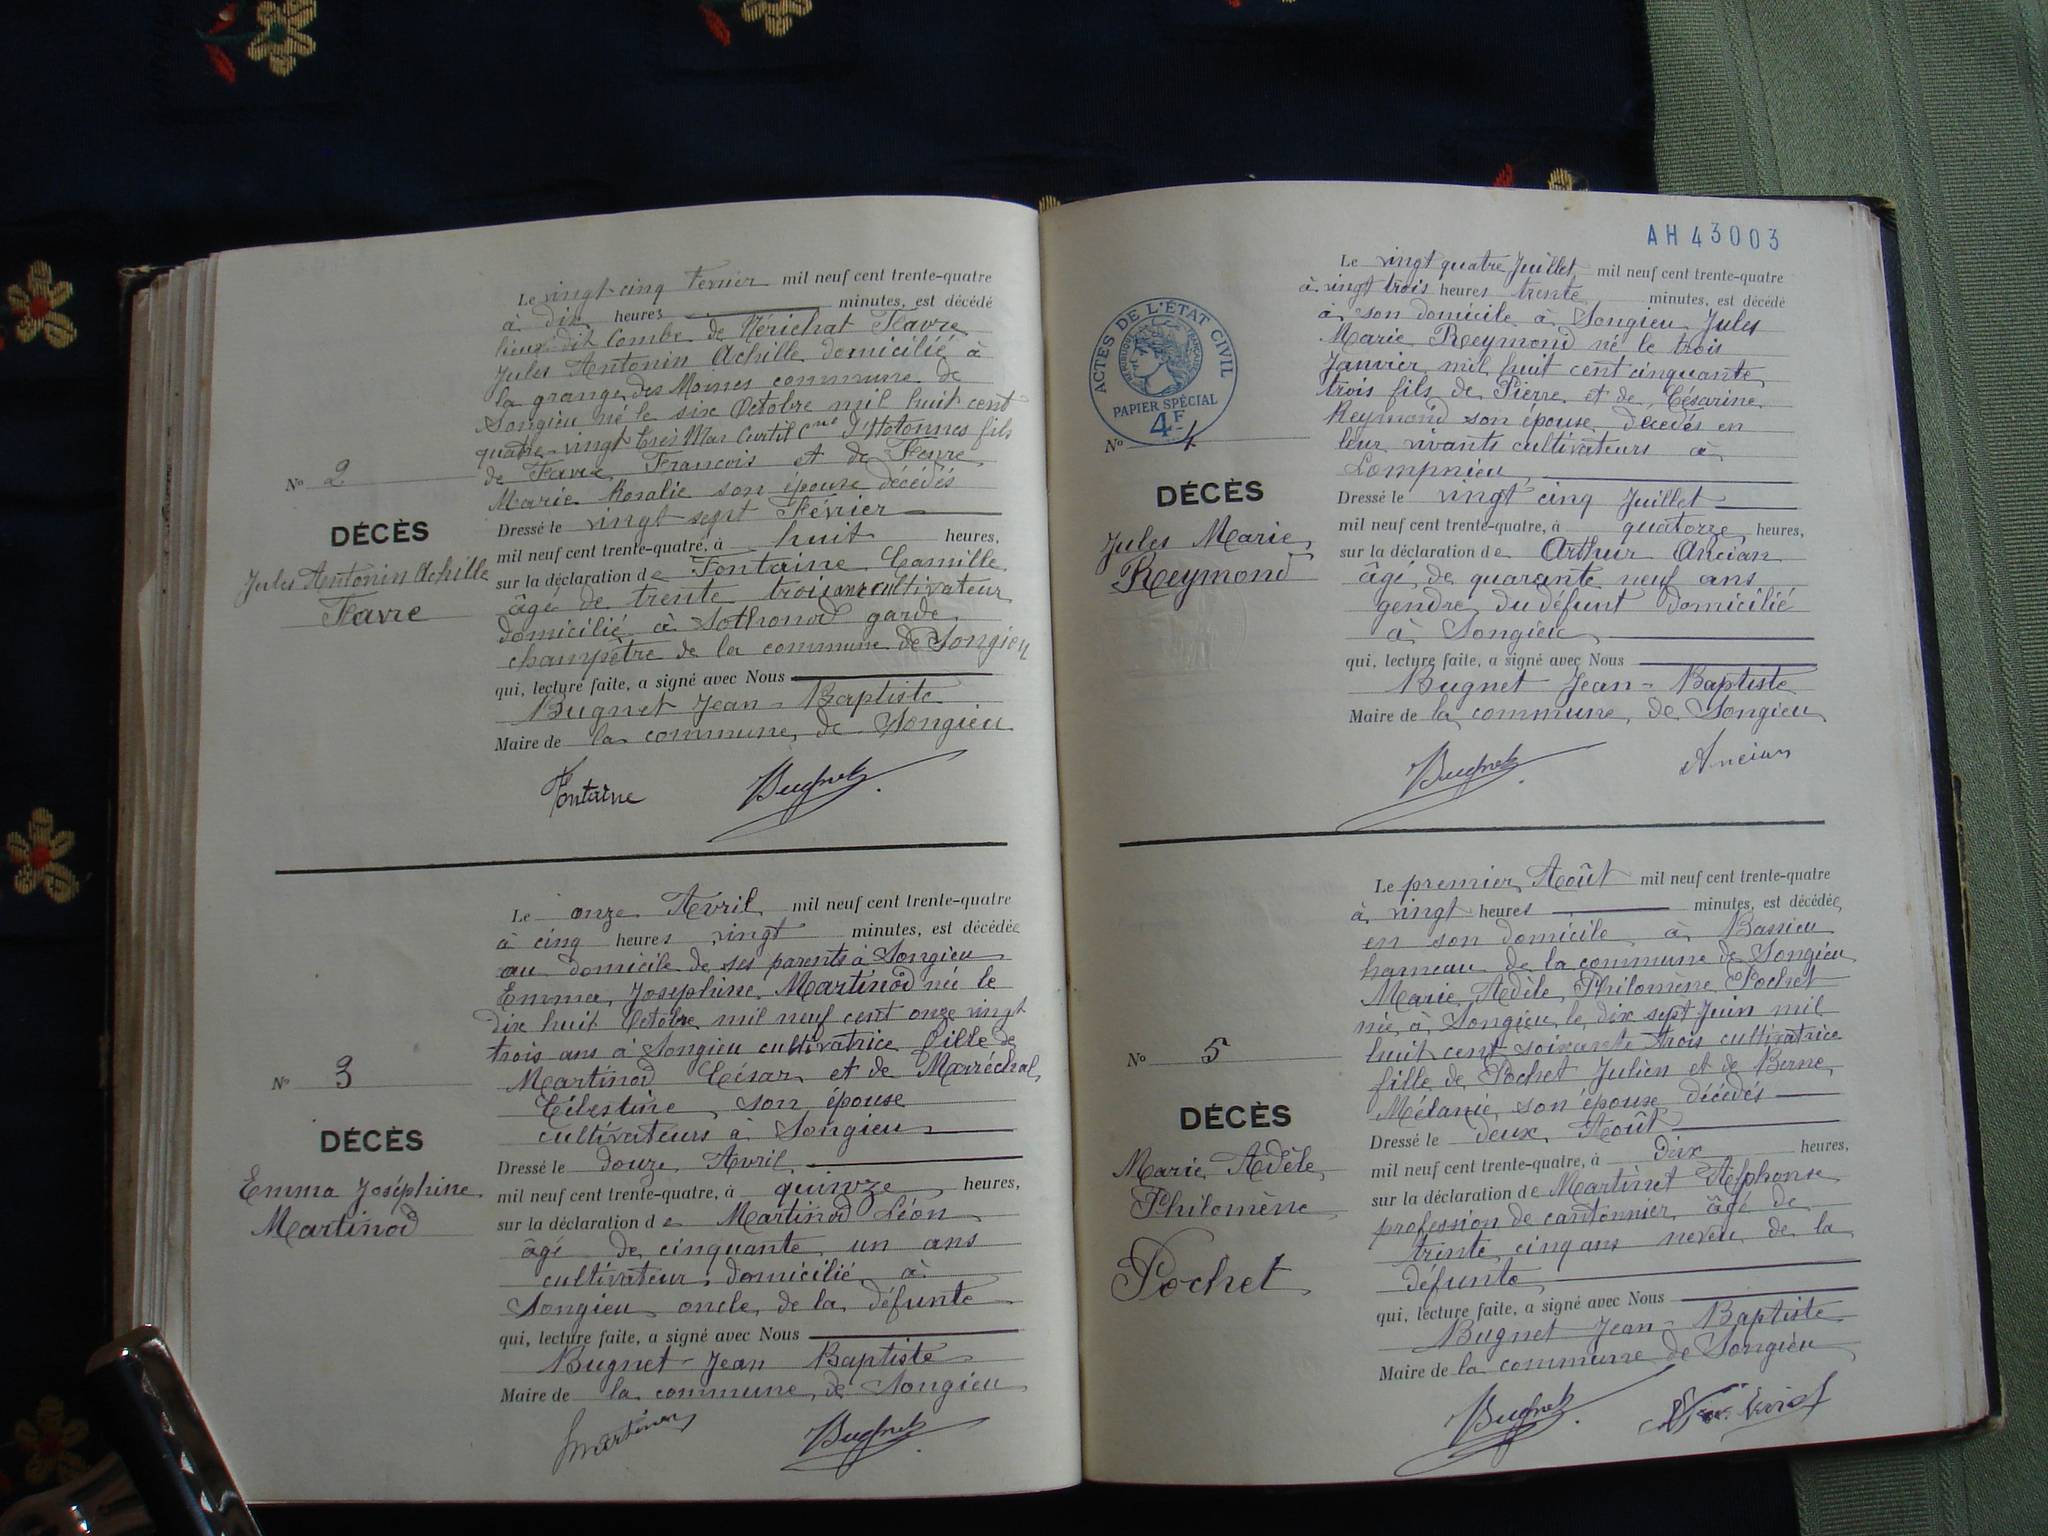 Le vingt-cinq Février mil neuf cent trente-quatre
à dix heures minutes, est décédé
lieux dit Combe de Nérichat Favre
Jules Antonin Achille domicilié à
la grange des Moines commune de
Songieu né le six Octobre mil huit cent
quatre-vingt Curtil Cne d'Hotonnes fils
de Favre François et de Favre
Marie Rosalie son épouse décédés
No 2
DÉCÈS
Jules Antonin Achille
Favre
Dressé le vingt sept Février
mil neuf cent trente-quatre, à huit heures,
sur la déclaration de Fontaine Camille
âgé de trente trois ans cultivateur
domicilié à Sothonod garde
champêtre de la commune de Songieu
qui, lecture faite, a signé avec Nous
Bugnet Jean-Baptiste
Maire de la commune de Songieu
Fontaine Bugnet
Le onze Avril mil neuf cent trente-quatre
à cinq heures vingt minutes, est décédée
au domicile de ses parents à Songieu
Emma Joséphine Martinod née le
dix huit Octobre mil neuf cent onze vingt
trois ans à Songieu cultivatrice fille de
Martinod César et de Maréchal
Célestine son épouse
cultivateurs à Songieu
No 3
DÉCÈS
Emma Joséphine
Martinod
Dressé le douze Avril
mil neuf cent trente-quatre, à quinze heures,
sur la déclaration de Martinod Léon
âgé de cinquante un ans
cultivateur domicilié à
Songieu oncle de la défunte
qui, lecture faite, a signé avec Nous
Bugnet-Jean Baptiste
Maire de la commune de Songieu
Martinod Bugnet
AH 43003
ACTES DE L'ÉTAT CIVIL
RÉPUBLIQUE FRANÇAISE
PAPIER SPÉCIAL
4F
Le vingt quatre Juillet mil neuf cent trente-quatre
à vingt trois heures trente minutes, est décédé
à son domicile à Songieu Jules
Marie Reymond né le trois
Janvier mil huit cent cinquante
trois fils de Pierre et de Césarine
Reymond son épouse décédés en
leur vivants cultivateurs à
Lompnieu
No 4
DÉCÈS
Jules Marie
Reymond
Dressé le vingt cinq Juillet
mil neuf cent trente-quatre, à quatorze heures,
sur la déclaration de Arthur Ancian
âgé de quarante neuf ans
gendre du défunt domicilié
à Songieu
qui, lecture faite, a signé avec Nous
Bugnet Jean-Baptiste
Maire de la commune de Songieu
Bugnet Ancian
Le premier Août mil neuf cent trente-quatre
à vingt heures minutes, est décédée
en son domicile à Bassieu
hameau de la commune de Songieu
Marie Adèle Philomène Pochet
née à Songieu le dix sept Juin mil
huit cent soixante trois cultivatrice
fille de Pochet Julien et de Berne
Mélanie son épouse décédés
No 5
DÉCÈS
Marie Adèle
Philomène
Pochet
Dressé le deux Août
mil neuf cent trente-quatre, à dix heures,
sur la déclaration de Martinet Alphonse
profession de cantonnier âgé de
trente cinq ans neveu de la
défunte
qui, lecture faite, a signé avec Nous
Bugnet Jean-Baptiste
Maire de la commune de Songieu
Bugnet